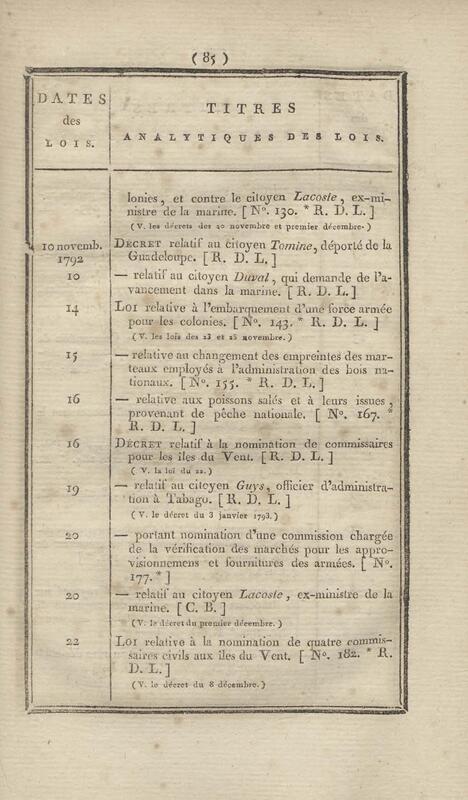 ( 85 )
DATES
des
LOIS.
TITRES
ANALYTIQUES DES LOIS.
lonies, et contre le citoyen Lacoste, ex-mi-
nistre de la marine. [ Nº. 130. * R. D. L. ]
( V. les décrets des 20 novembre et premier décembre. )
10 novemb. DÉCRET relatif au citoyen Tomine, déporté de la
1792 Guadeloupe. [ R. D. L. ]
10 — relatif au citoyen Duval, qui demande de l'a-
vancement dans la marine. [ R. D. L. ]
14 LOI relative à l'embarquement d'une force armée
pour les colonies. [ Nº. 143. * R. D. L. ]
( V. les lois des 23 et 25 novembre. )
15 — relative au changement des empreintes des mar-
teaux employés à l'administration des bois na-
tionaux. [ Nº. 155. * R. D. L. ]
16 — relative aux poissons salés et à leurs issues,
provenant de pêche nationale. [ Nº. 167. *
R. D. L. ]
16 DÉCRET relatif à la nomination de commissaires
pour les îles du Vent. [ R. D. L. ]
( V. la loi du 22. )
19 — relatif au citoyen Guys, officier d'administra-
tion à Tabago. [ R. D. L. ]
( V. le décret du 3 janvier 1793. )
20 — portant nomination d'une commission chargée
de la vérification des marchés pour les appro-
visionnemens et fournitures des armées. [ Nº.
177. * ]
20 — relatif au citoyen Lacoste, ex-ministre de la
marine. [ C. B. ]
( V. le décret du premier décembre. )
22 LOI relative à la nomination de quatre commis-
saires civils aux îles du Vent. [ Nº. 182. * R.
D. L. ]
( V. le décret du 8 décembre. )